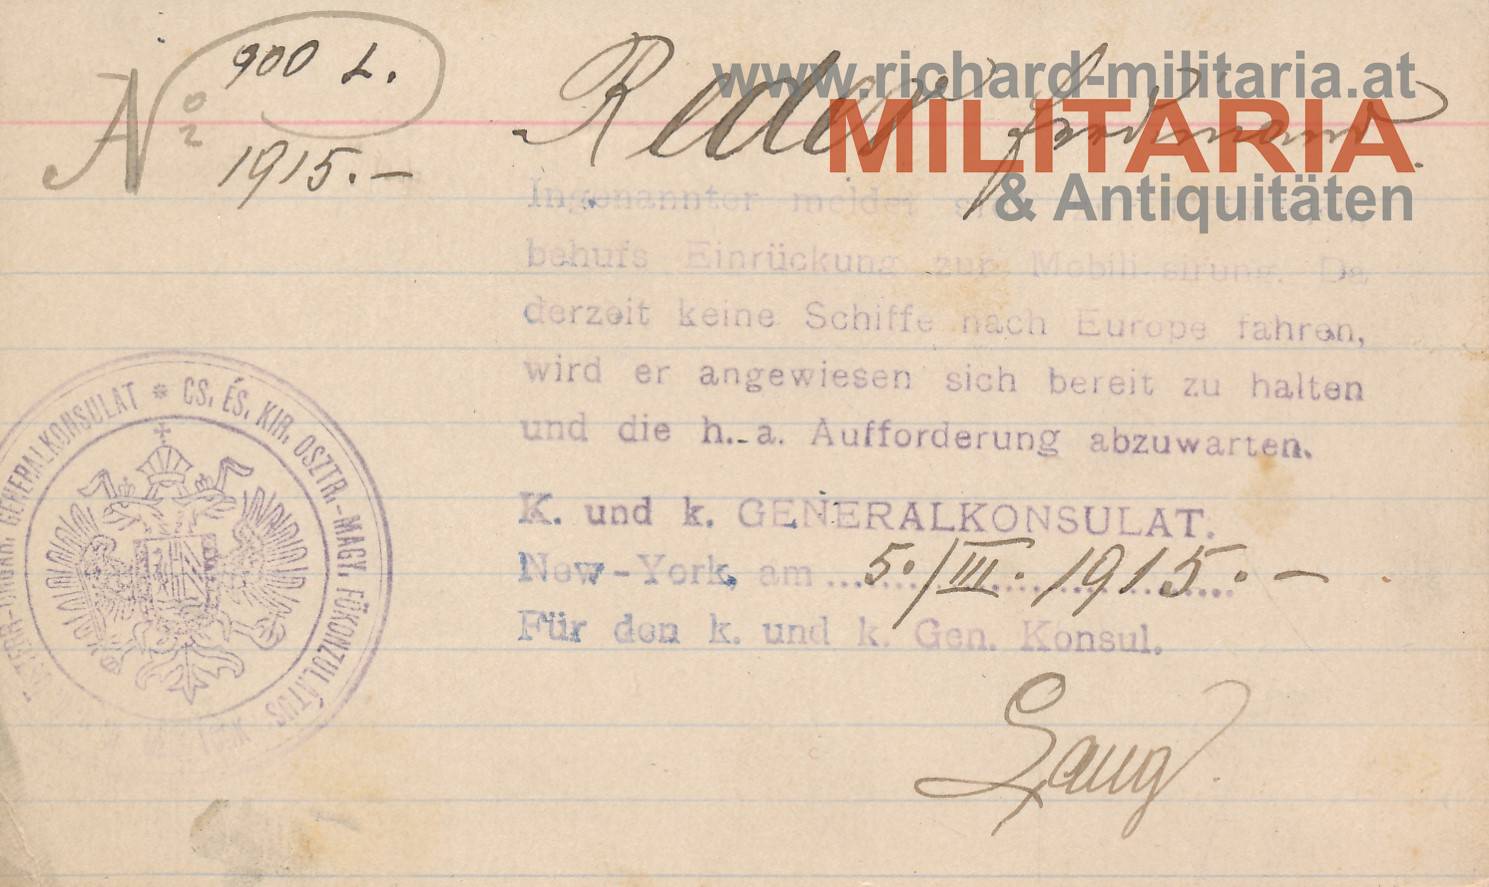 900 L.
No
1915.–
www.richard-militaria.at
MILITARIA
& Antiquitäten
Ingenannter meldet
behufs Einrückung zur Mobilisirung. Da
derzeit keine Schiffe nach Europe fahren,
wird er angewiesen sich bereit zu halten
und die h.-a. Aufforderung abzuwarten.
GENERALKONSULAT * CS. ÉS. KIR. OSZTR.-MAGY. FÖKONZULÁTUS
K. und k. GENERALKONSULAT.
New-York, am 5./III. 1915.–
Für den k. und k. Gen. Konsul.